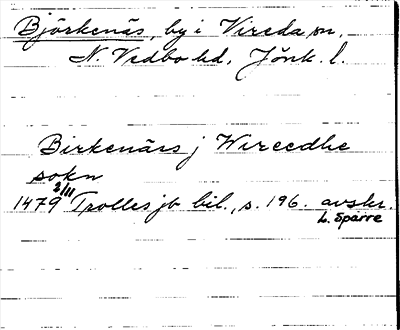 Björkenäs, by i Vireda sn.
N. Vedbo hd, Jönk. l.
Birkenärs j Wireedhe
sokn
1479 2/11 Trolles jb bil., s. 196. avskr.
L. Sparre